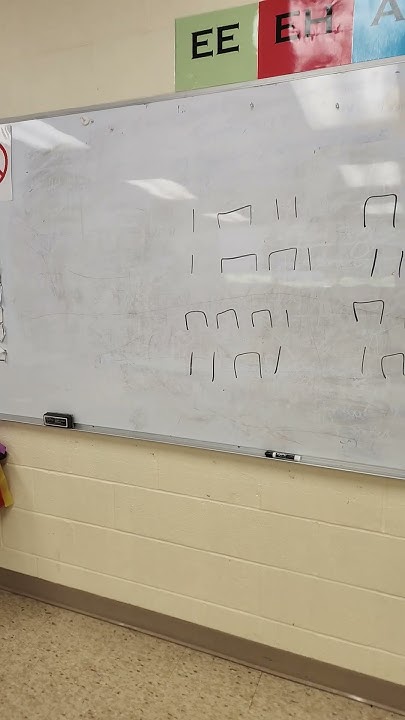 EE EH A
| ⊓ | |
| ⊓ ⊓ |
⊓ ⊓ ⊓ |
| | ⊓ |